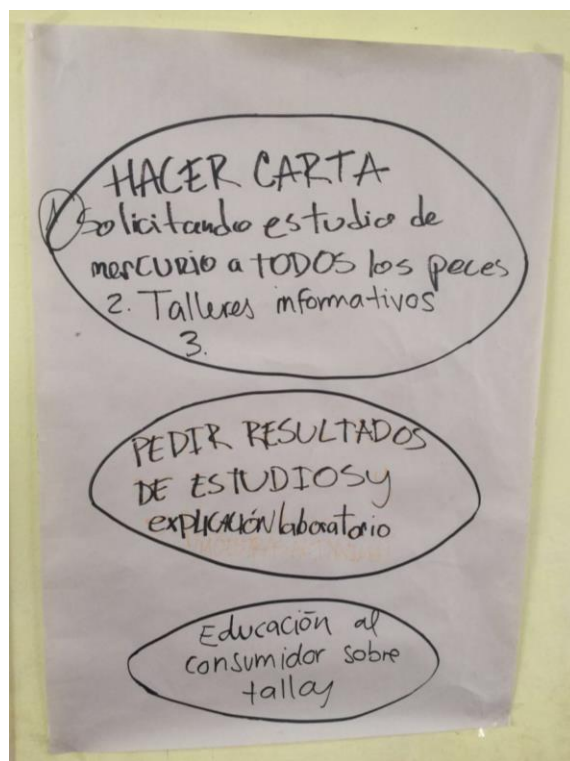 HACER CARTA
1 Solicitando estudio de
merCURIO a TODOS los peces
2. Talleres informativos
3.
PEDIR RESULTADOS
DE ESTUDIOS y
EXPLICACIÓN laboratorio
Educación al
consumidor sobre
tallas